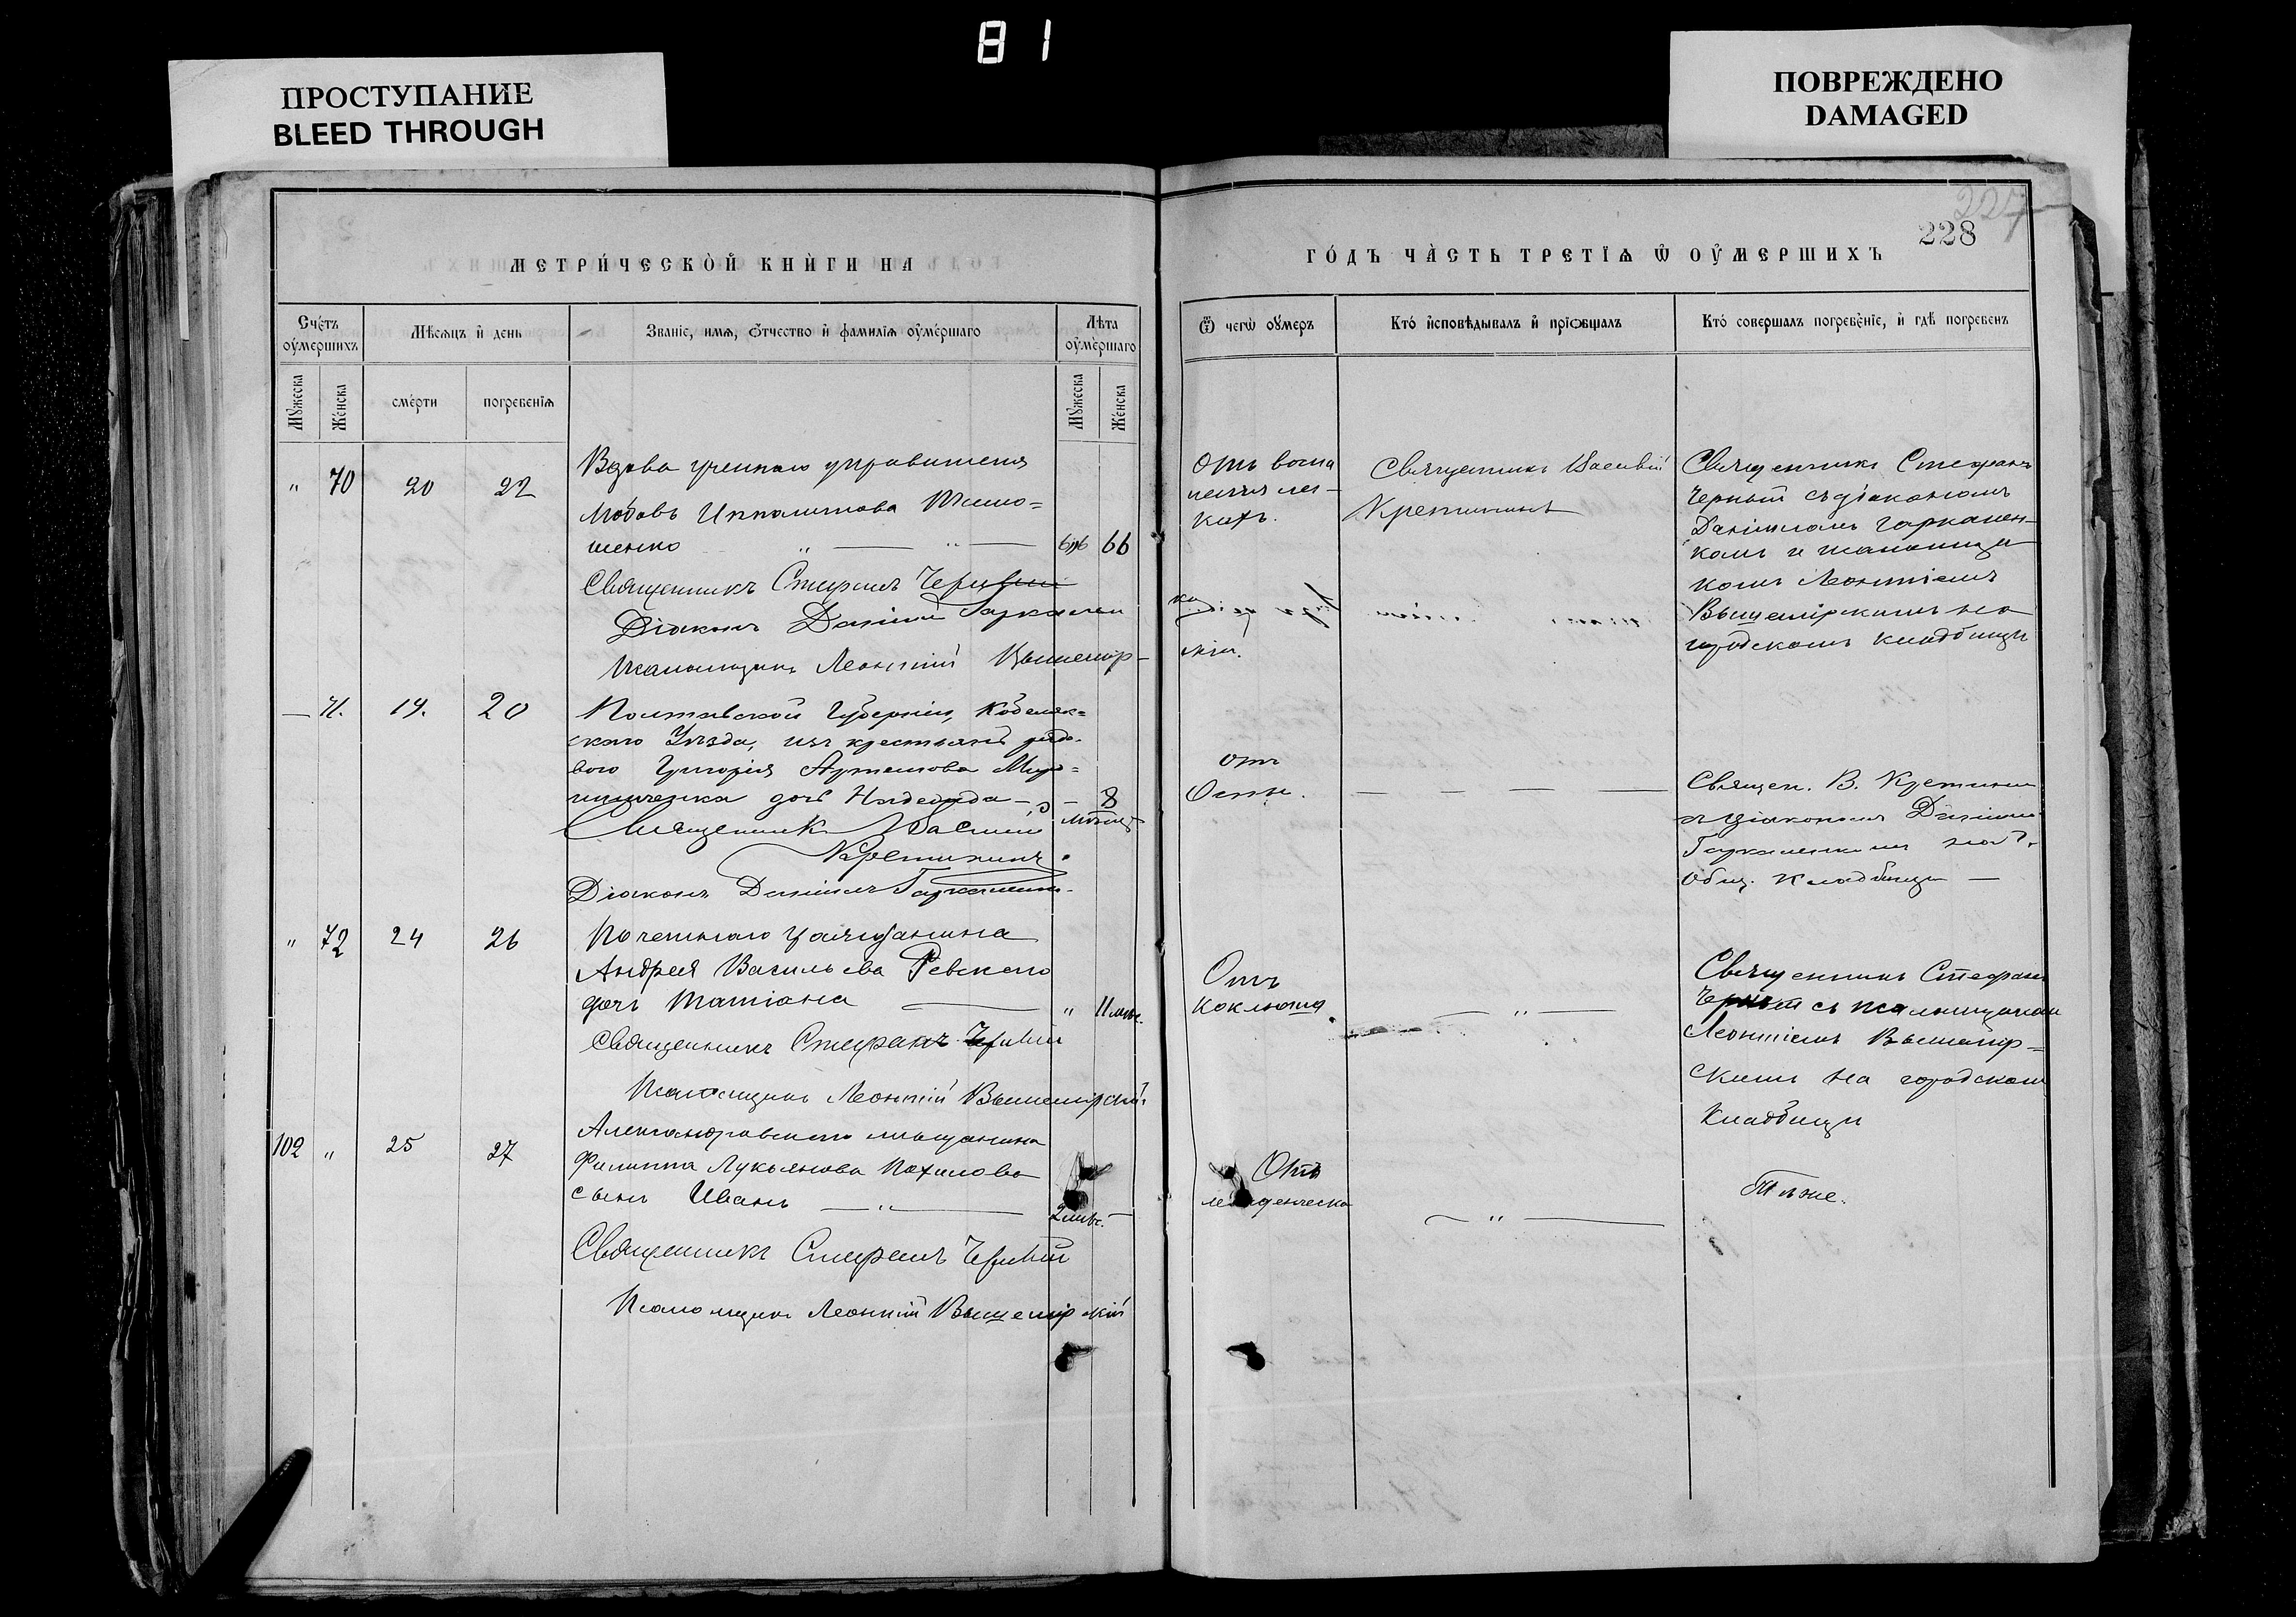 81
ПРОСТУПАНИЕ
BLEED THROUGH
ПОВРЕЖДЕНО
DAMAGED
227
228
МЕТРИ́ЧЕСКОЙ КНИ́ГИ НА
ГО́ДЪ ЧА́СТЬ ТРЕТІѦ Ѡ ОУ҆МЕРШИХЪ
Сче́тъ оу҆ме́ршихъ
Мѣ́сѧцъ и҆ день
Зва́ніе, имѧ, ѻ҆тчество и҆ фамилїѧ оу҆ме́ршаго
Лѣ́та оу҆ме́ршаго
Мꙋ́жеска
Же́нска
сме́рти
погребе́нїѧ
Мꙋ́жеска
Же́нска
Ѿ чегѡ̀ оу҆́меръ
Кто́ и҆сповѣ́дывалъ и҆ прїѡбща́лъ
Кто́ соверша́лъ погребе́ніе, и҆ гдѣ̀ погребе́нъ
" 70 20 22
Вдова ученаго управителя
Любовь Ипполитова Тимо=
шенко " — " — 66
Священникъ Стефанъ Черный
Діаконъ Даніилъ Гаркаменко
Псаломщикъ Леонтій Вышемір-
скій.
Отъ воспа
ленія лег-
кихъ.
Священникъ Василій
Кретининъ
Священникъ Стефанъ
Черный съ діакономъ
Даніиломъ Гаркамен-
комъ и псаломщи
комъ Леонтіемъ
Вышемірскимъ на
городскомъ кладбищѣ
— 71. 19. 20
Полтавской Губерніи, Кобеляк=
скаго Уѣзда, изъ крестьянъ рядо-
вого Григорія Артемова
дочь Надежда — 8
мѣсяц
Священникъ Василій
Кретининъ.
Діаконъ Даніилъ Гаркаменко.
отъ
Оспы.
Священ. В. Кретинин
съ діакономъ Даніиломъ
Гаркаменкомъ на
Общ. Кладбищѣ —
" 72 24 26
Почетнаго гражданина
Андрея Васильева Ревскаго
дочь Татіана — " 11 мѣс.
Священникъ Стефанъ Черный
Псаломщикъ Леонтій Вышемірскій
Отъ
Коклюша.
— " —
Священникъ Стефанъ
Черный съ псаломщикомъ
Леонтіемъ Вышемір=
скимъ на городскомъ
Кладбищѣ
102 " 25 27
Александровскаго мѣщанина
Филиппа Лукьянова Похилова
сынъ Иванъ — " — 2 мѣс. —
Священникъ Стефанъ Черный
Псаломщикъ Леонтій Вышемірскій
Отъ
младенческа
— " —
Тѣ же.